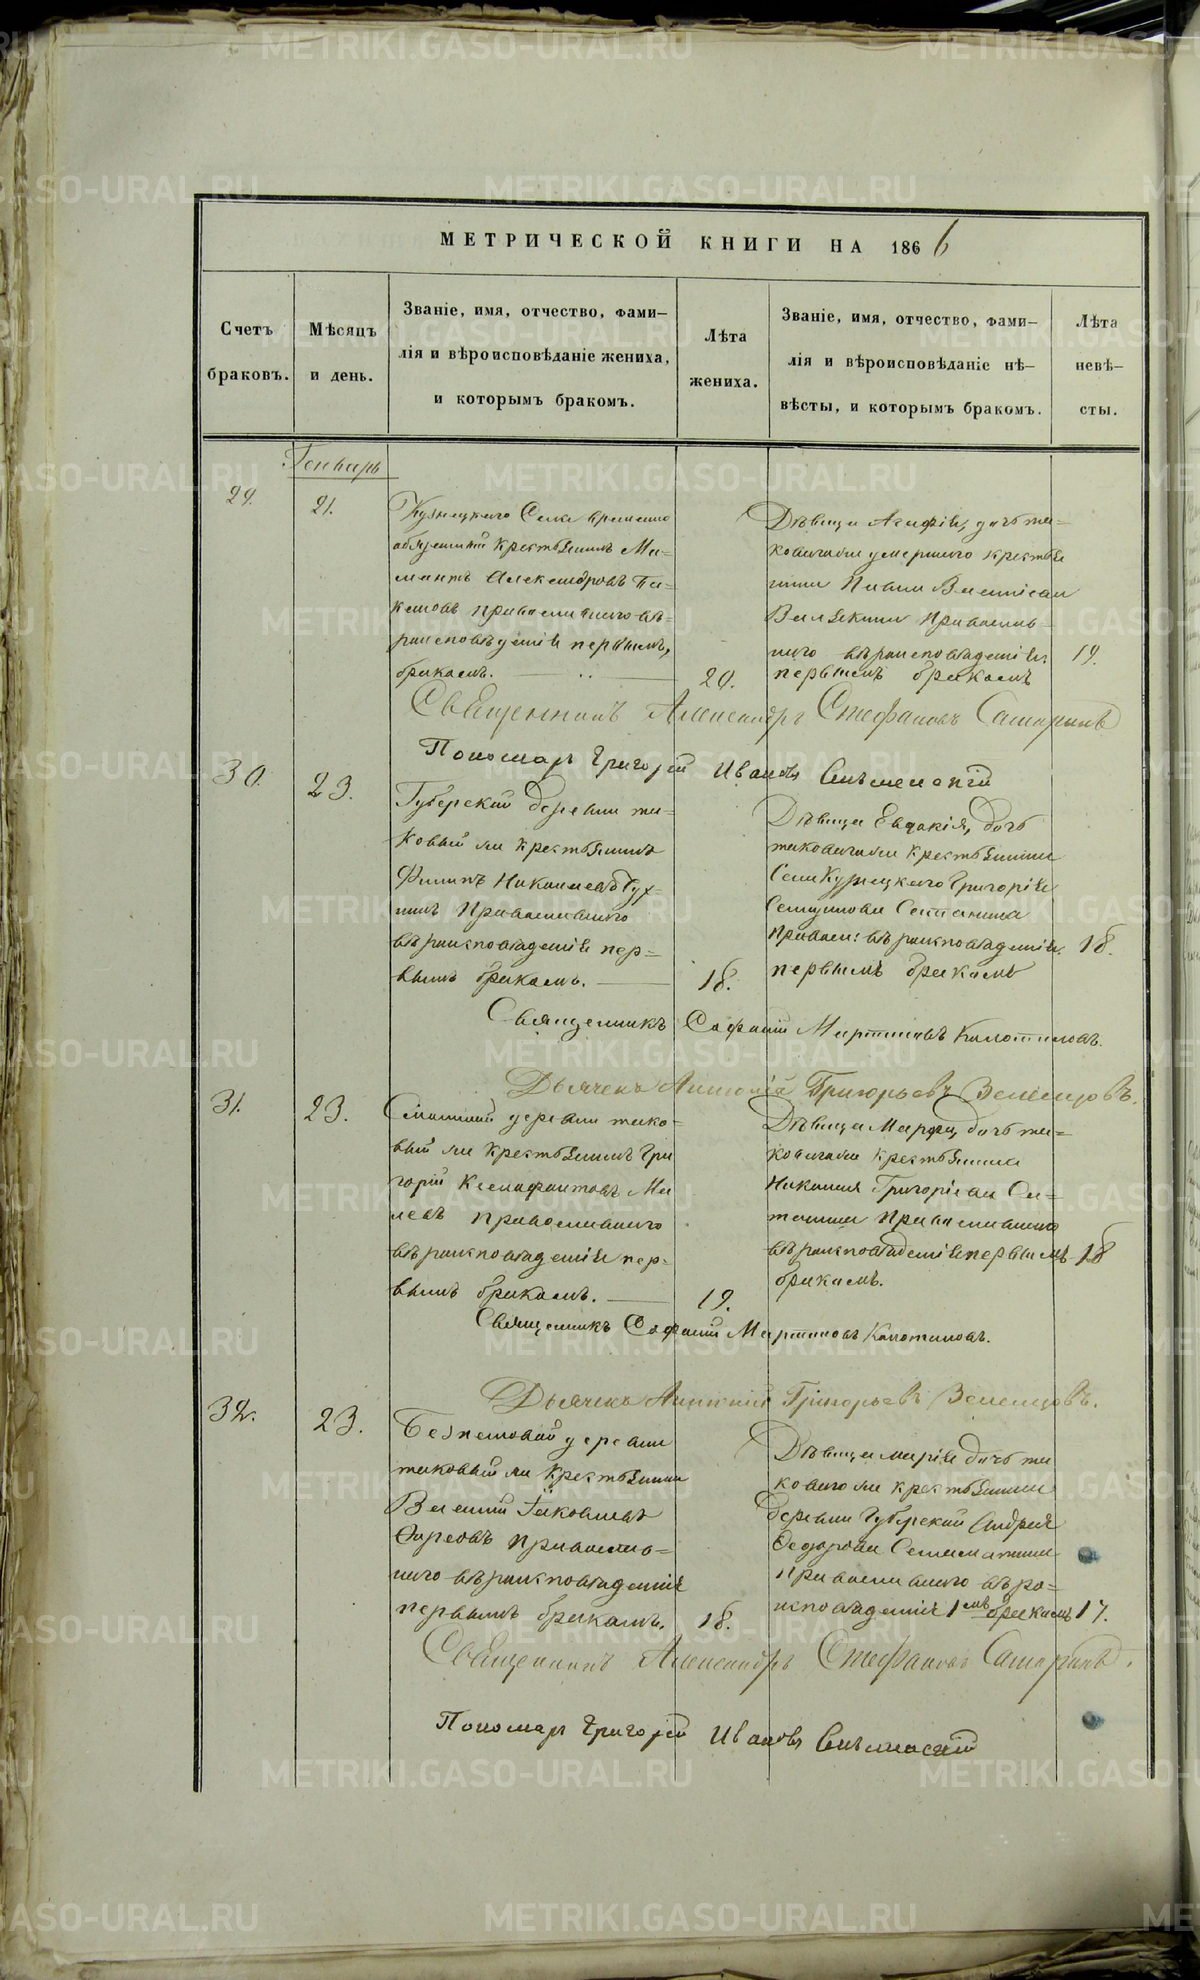 МЕТРИЧЕСКОЙ КНИГИ НА 1866
Счетъ браковъ.
Мѣсяцъ и день.
Званіе, имя, отчество, фами-
лія и вѣроисповѣданіе жениха,
и которымъ бракомъ.
Лѣта жениха.
Званіе, имя, отчество, фами-
лія и вѣроисповѣданіе нѣ-
вѣсты, и которымъ бракомъ.
Лѣта невѣ-
сты.
Генварь
29.
21.
Кузнецкаго Села временно
обязанный крестьянинъ Ма-
мантъ Александровъ
православнаго вѣ-
роисповѣданія первымъ
бракомъ.
20.
Дѣвица Агафія, дочь та-
коваго же умершаго крестья
нина Павла
православ-
наго вѣроисповѣданія
первымъ бракомъ
19.
Священникъ Александръ Стефановъ
Пономарь Григорій Ивановъ
30.
23.
Губерской деревни та-
ковый же крестьянинъ
Филипъ Николаевъ
Православнаго
вѣроисповѣданія пер-
вымъ бракомъ.
18.
Дѣвица Евдокія, дочь
таковаго же крестьянина
Села Кузнецкаго Григорія
правосл: вѣроисповѣданія
первымъ бракомъ
18.
Священникъ Мартиновъ
Дьячекъ Антоній Григорьевъ Земленцовъ.
31.
23.
деревни тако-
вый же крестьянинъ Гри
горій Ксенофонтовъ
православнаго
вѣроисповѣданія пер-
вымъ бракомъ.
19.
Дѣвица Марфа, дочь та-
коваго же крестьянина
Григоріева
православнаго
вѣроисповѣданія первымъ
бракомъ.
18
Священникъ Мартиновъ
Дьячекъ Антоній Григорьевъ Земленцовъ.
32.
23.
деревни
таковый же крестьянинъ
Василій Іаковлевъ
православ-
наго вѣроисповѣданія
первымъ бракомъ.
18.
Дѣвица Марія дочь та
коваго же крестьянина
деревни Губерской Андрея
Федорова
православнаго вѣро-
исповѣданія 1мъ бракомъ
17.
Священникъ Александръ Стефановъ
Пономарь Григорій Ивановъ
METRIKI.GASO-URAL.RU